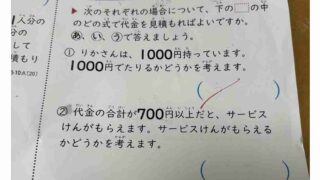 ▶ 次のそれぞれの場合について、下の の中
のどの式で代金を見積もればよいですか。
あ、い、うで答えましょう。
① りかさんは、1000円持っています。
1000円でたりるかどうかを考えます。
( )
② 代金の合計が700円以上だと、サービス
けんがもらえます。サービスけんがもらえる
かどうかを考えます。
( )
1人分の
して
積もり